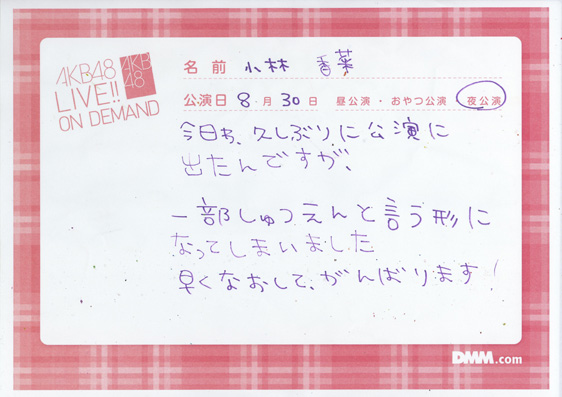 AKB48
LIVE!!
ON DEMAND
AKB
48
名前 小林 香菜
公演日 8・月 30日 昼公演・おやつ公演 夜公演
今日わ、久しぶりに公演に
出たんですが、
一部しゅつえんと言う形に
なってしまいました
早くなおして、がんばります!
DMM.com